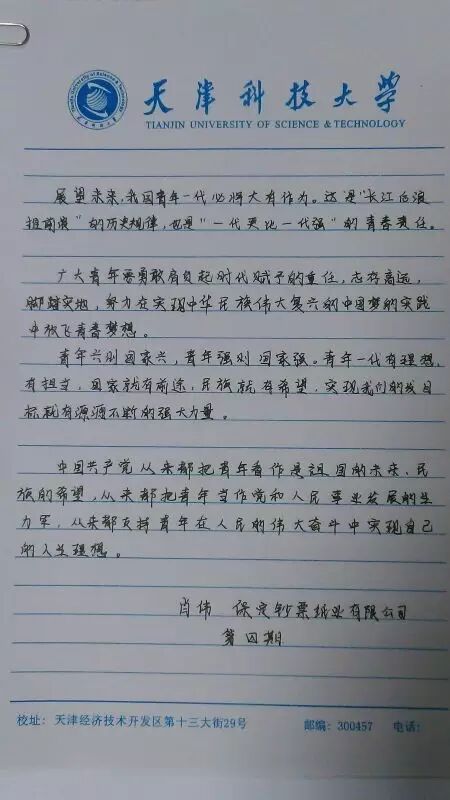 天津科技大学
TIANJIN UNIVERSITY OF SCIENCE & TECHNOLOGY
展望未来,我国青年一代必将大有作为。这是"长江后浪
推前浪"的历史规律,也是"一代更比一代强"的青春责任。
广大青年要勇敢肩负起时代赋予的重任,志存高远,
脚踏实地,努力在实现中华民族伟大复兴的中国梦的实践
中放飞青春梦想。
青年兴则国家兴,青年强则国家强。青年一代有理想,
有担当,国家就有前途,民族就有希望,实现我们的发目
标就有源源不断的强大力量。
中国共产党从来都把青年看作是祖国的未来、民
族的希望,从来都把青年当作党和人民事业发展的生
力军,从来都支持青年在人民的伟大奋斗中实现自己
的人生理想。
肖伟 保定钞票纸业有限公司
第四期
校址:天津经济技术开发区第十三大街29号 邮编:300457 电话: